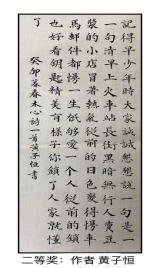 記得早少年時大家誠誠懇懇說一句是一
一句清早上火車站長街黑暗無行人賣豆
漿的小店冒著熱氣從前的日色變得慢車
馬郵件都慢一生祇夠愛一個人從前的鎖
也好看鑰匙精美有樣子你鎖了人家就懂
了
癸卯暮春木心詩一首黃子恒書
二等奖：作者 黄子恒